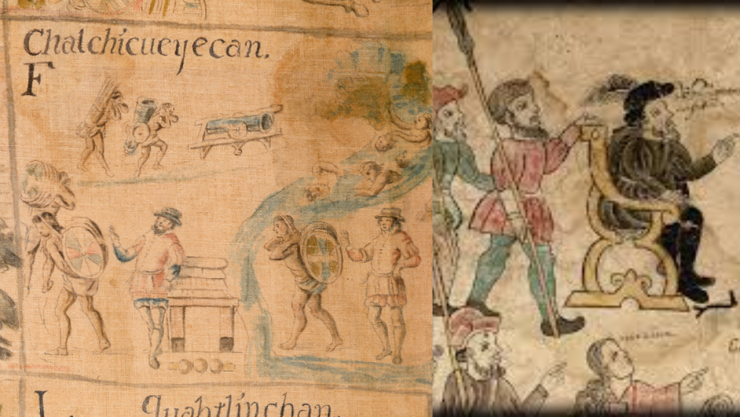 Chalchicueyecan.
F
L
quahtlinchan.